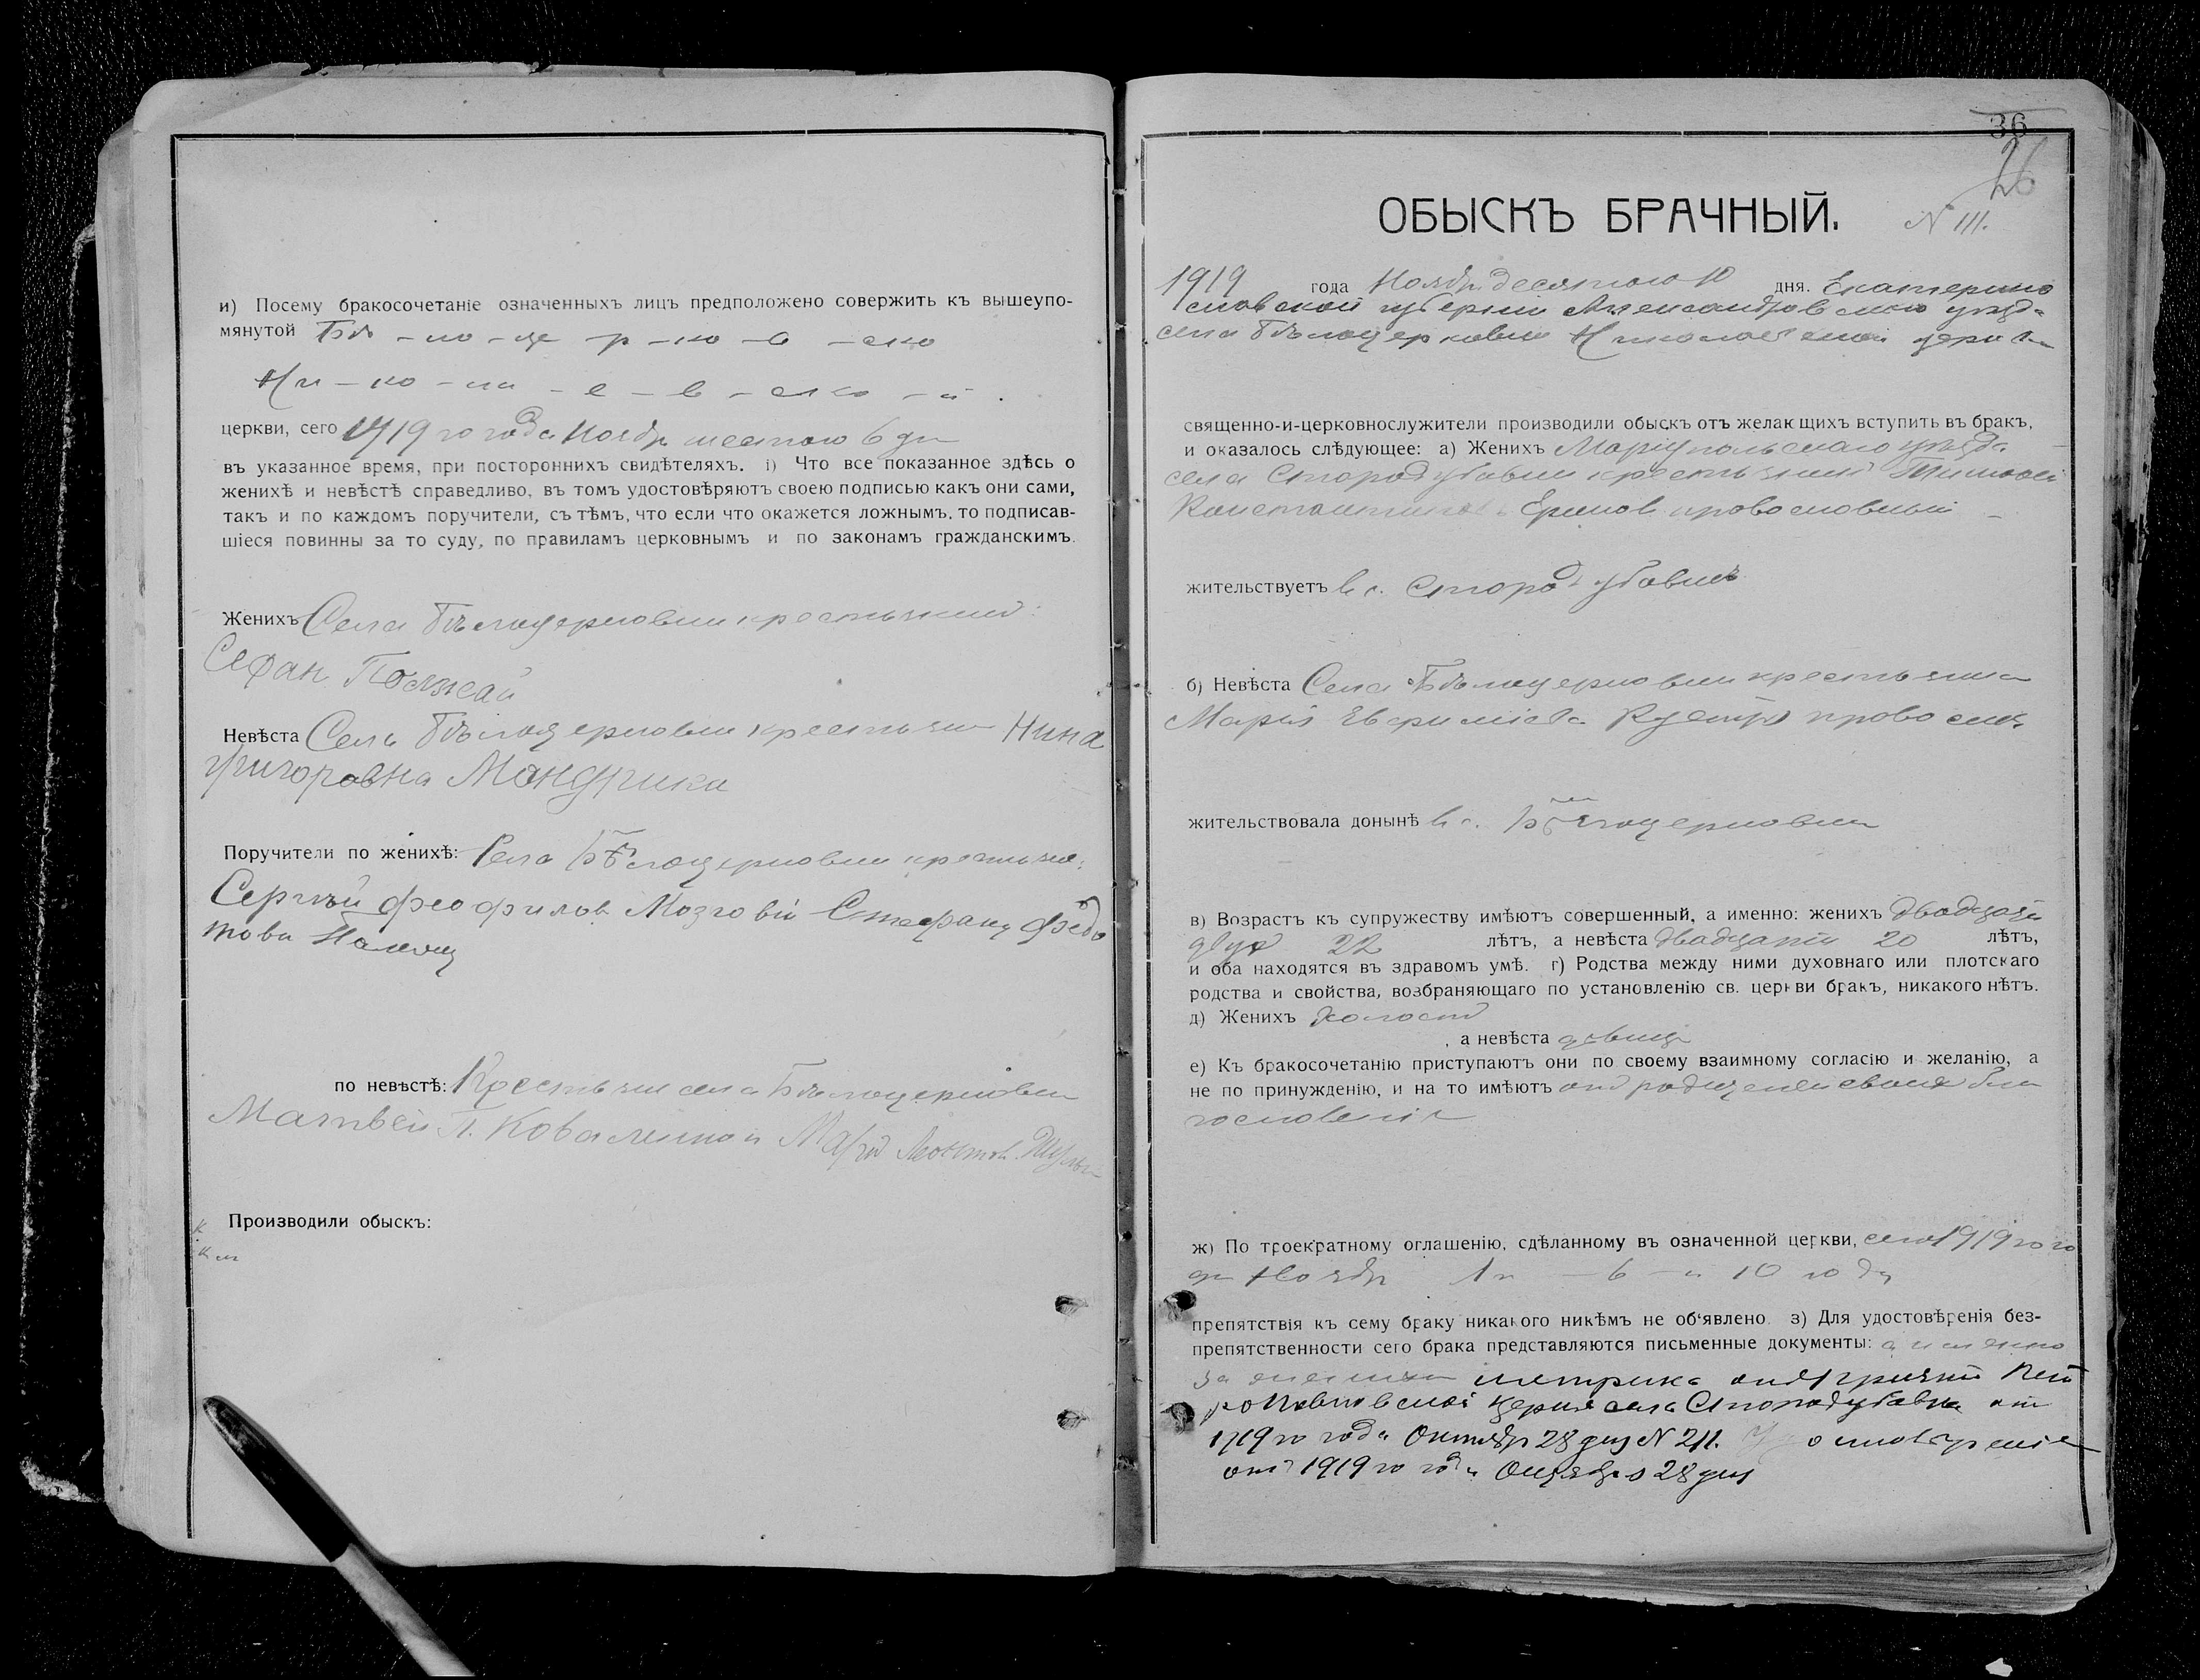 и) Посему бракосочетаніе означенныхъ лицъ предположено совержить къ вышеупо-
мянутой Бѣ - ло - це - р - ко - в - ско
Ни - ко - ла - е - в - ско - й .
церкви, сего 1919 го года Ноябр шестого 6 дн
въ указанное время, при постороннихъ свидѣтеляхъ. і) Что все показанное здѣсь о
женихѣ и невѣстѣ справедливо, въ томъ удостовѣряютъ своею подписью какъ они сами,
такъ и по каждомъ поручители, съ тѣмъ, что если что окажется ложнымъ, то подписав-
шіеся повинны за то суду, по правиламъ церковнымъ и по законамъ гражданскимъ.
Женихъ Села Бѣлоцерковки крестьянин:
Сефан
Невѣста Села Бѣлоцерковки крестьян Нина
григоровна Мандрика
Поручители по женихѣ: Села Бѣлоцерковки крестьяне:
Сергѣй феофилов Мозговій Стефану Федо
това
по невѣстѣ: Крестьяне села Бѣлоцерковки
Матвей П. Коваленко и
Производили обыскъ:
36
26
ОБЫСКЪ БРАЧНЫЙ.
N 111.
1919 года Ноябр десятого 10 дня. Екатерино
славской губерніи Александровского уѣзда
села Бѣлоцерковки Николаевской церкви
священно-и-церковнослужители производили обыскъ отъ желающихъ вступить въ бракъ,
и оказалось слѣдующее: а) Женихъ Маріупольскаго уѣзда
села Стородубовки крестьянин Тимофей
Константинов православный
жительствуетъ в с. Стородубовке
б) Невѣста Села Бѣлоцерковки крестьянка
Марія православ.
жительствовала донынѣ в с. Бѣлоцерковки
в) Возрастъ къ супружеству имѣютъ совершенный, а именно: женихъ двадцати
двух 22 лѣтъ, а невѣста двадцати 20 лѣтъ,
и оба находятся въ здравомъ умѣ. г) Родства между ними духовнаго или плотскаго
родства и свойства, возбраняющаго по установленію св. церкви бракъ, никакого нѣтъ.
д) Женихъ холост
, а невѣста девица
е) Къ бракосочетанію приступаютъ они по своему взаимному согласію и желанію, а
не по принужденію, и на то имѣютъ от родителей своих бла
гословенія
ж) По троекратному оглашенію, сдѣланному въ означенной церкви, сего 1919 го го
да Ноябр 1 - 6 - и 10 году
препятствія къ сему браку никакого никѣмъ не об'явлено. з) Для удостовѣренія без-
препятственности сего брака представляются письменные документы: а именно
за метрика Пет
ропавловской церкви села Стородубовки от
1919 го года Октябр 28 дня N 211.
от 1919 го года Октября 28 дня